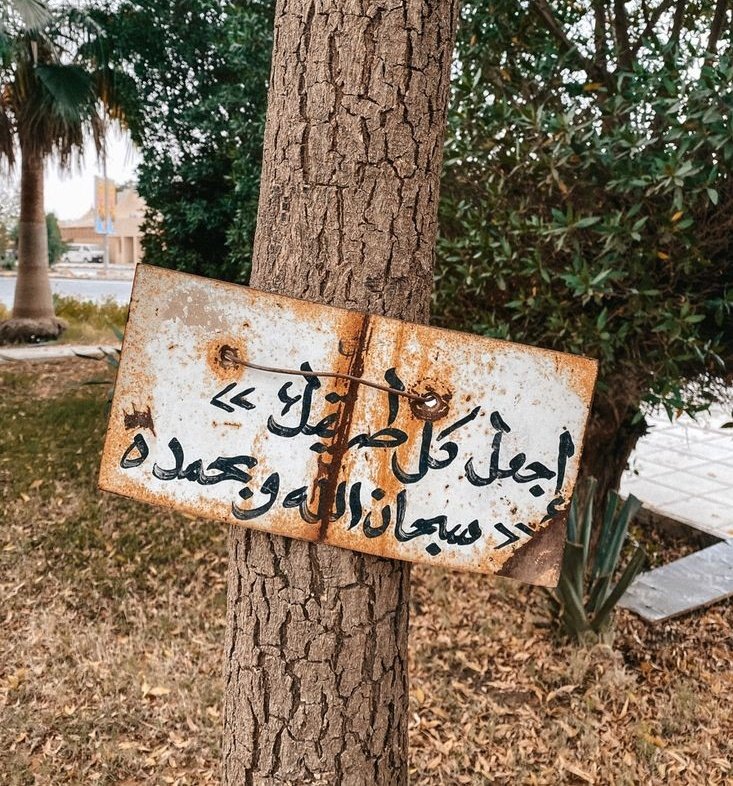 إجعل كل طريقك «
» سبحان الله وبحمده